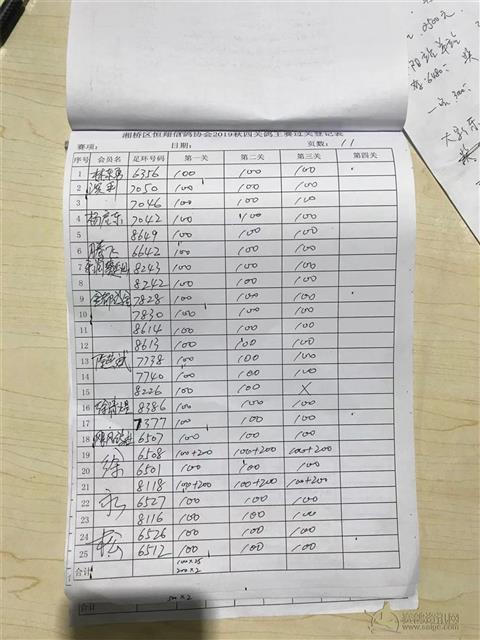 湘桥区恒翔信鸽协会2019秋四关鸽王赛过关登记表
赛项: 日期: 页数: 11
序号 会员名 足环号码 第一关 第二关 第三关 第四关
1 6356 100 100 100
2 7050 100 100 100
3 7046 100 100 100
4 7042 100 100 100
5 8649 100 100 100
6 腾飞 6642 100 100 100
7 8243 100 100 100
8 8242 100 100 100
9 7828 100 100 100
10 7830 100 100 100
11 8614 100 100 100
12 8613 100 100 100
13 7738 100 100 100
14 7740 100 100 100
15 8226 100 100 X
16 8386 100 100 100
17 7377 100 100 100
18 6507 100 100 100
19 徐 6508 100+200 100+200 100+200
20 6501 100 100 100
21 8118 100+200 100+200 100+200
22 永 6527 100 100 100
23 8116 100 100 100
24 松 6526 100 100 100
25 6512 100 100 100
合计 100×25
200×2
合计 200×2
2500元
6480
一加 300
赛鸽资讯网
www.saige.com